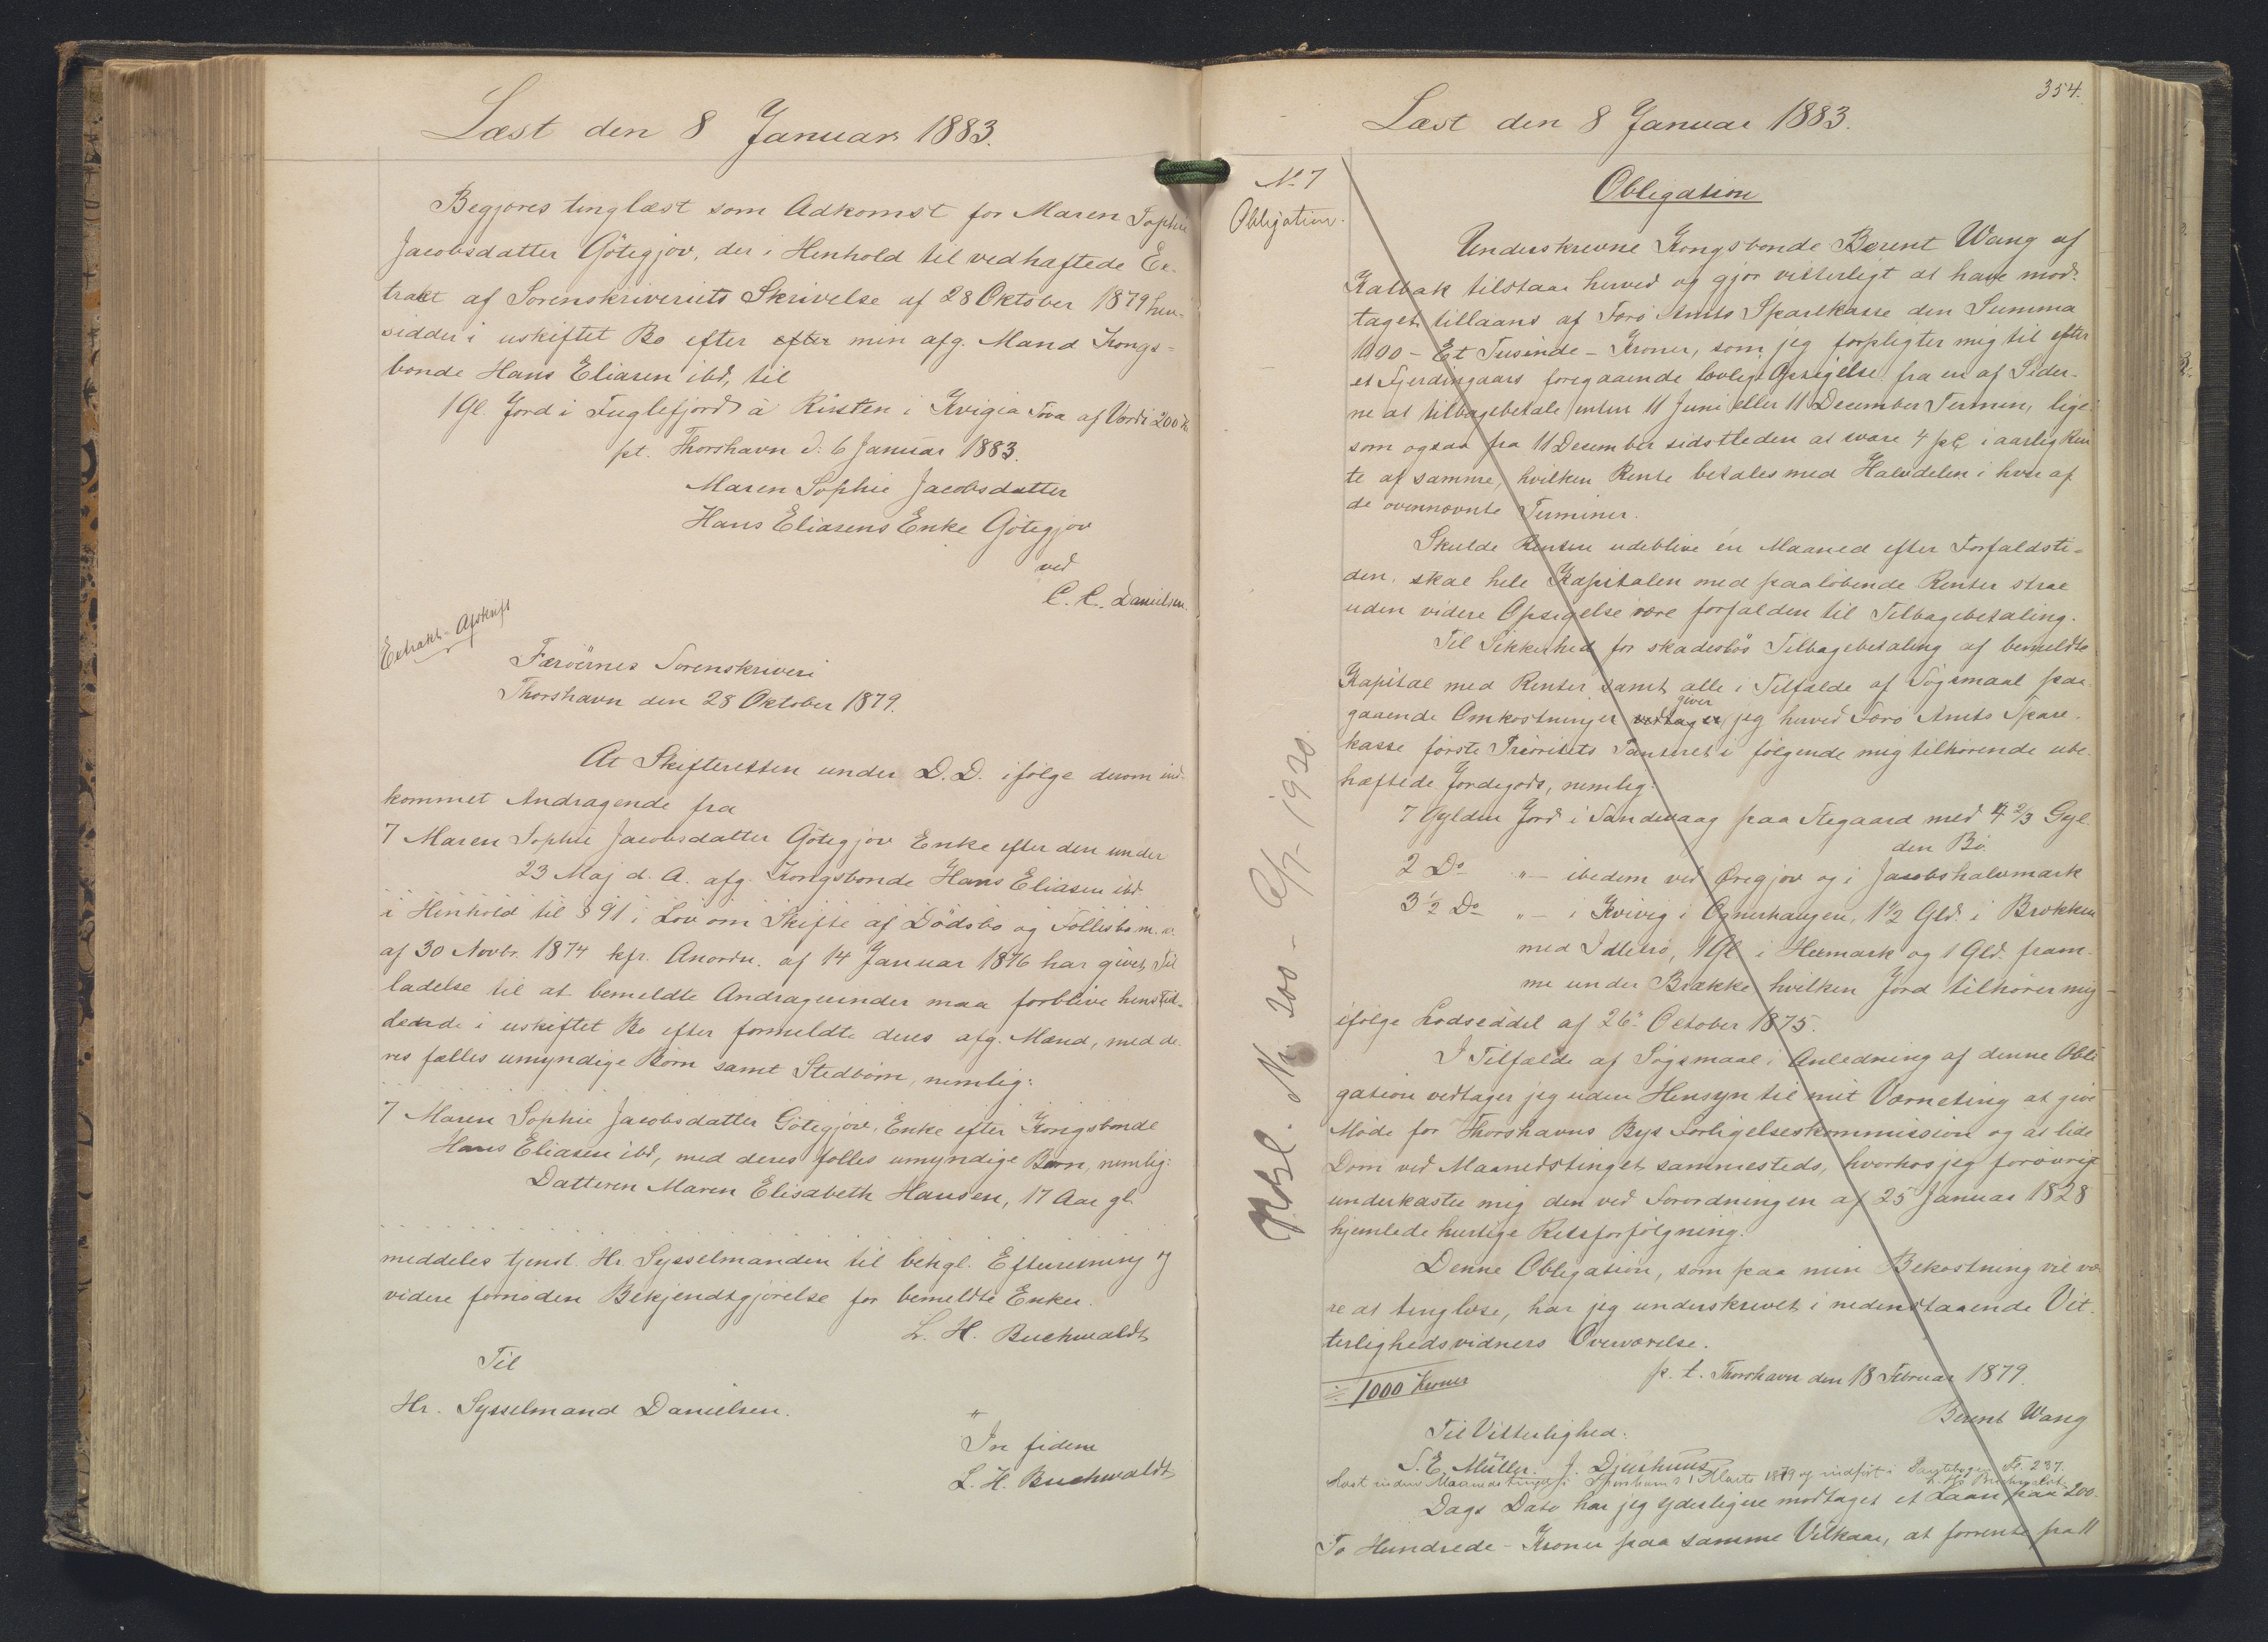 Læst den 8 Januar 1883.
Begjæres tinglæst som Adkomst for Maren Sophie
Jacobsdatter Götegjov, der i Henhold til vedhæftede Ex-
trakt af Sorenskriveriets Skrivelse af 28 Oktober 1879 hen-
sidder i uskiftet Bo efter efter min afg. Mand Kongs-
bonde Hans Eliasen ibd, til
1 Gl. Jord i Fuglefjord à Risten i Kvigia Tva af Værdi 200 Kr
pt. Thorshavn d: 6 Januar 1883.
Maren Sophie Jacobsdatter
Hans Eliasens Enke Götegjov
ved
C. C. Danielsen.
Extrakt-Afskrift
Færöernes Sorenskriveri
Thorshavn den 28 Oktober 1879.
At Skifteretten under D.D. ifölge derom ind-
kommet Andragende fra
7 Maren Sophie Jacobsdatter Götegjov Enke efter den under
23 Maj d. A. afg. Kongsbonde Hans Eliasen ibd.
i Henhold til § 91 i Lov om Skifte af Dödsbo og Fællesbo m. v.
af 30 Novbr. 1874 kfr. Anordn. af 14 Januar 1876 har givet Til
ladelse til at bemeldte Andragerinder maa forblive hensid-
dende i uskiftet Bo efter formeldte deres afg. Mænd, med de
res fælles umyndige Börn samt Stedbörn, nemlig:
7 Maren Sophie Jacobsdatter Götegjov, Enke efter Kongsbonde
Hans Eliasen ibd, med deres fælles umyndige Barn, nemlig:
Datteren Maren Elisabeth Hansen, 17 Aar gl.
meddeles tjenstl. Hr. Sysselmanden til behgl. Efterretning og
videre fornöden Bekjendtgjörelse for bemeldte Enker.
L. H. Buchwaldt
Til
Hr. Sysselmand Danielsen.
In fidem
L. H. Buchwaldt
354.
Læst den 8 Januar 1883.
No. 7
Obligation.
Obligation
Underskrevne Kongsbonde Berent Wang af
Kalbak tilstaar herved og gjör vitterligt at have mod-
taget tillaans af Færö Amts Sparekasse den Summa
1000 - Et Tusinde - Kroner, som jeg forpligter mig til efter
et Fjerdingaars foregaaende lovlig Opsigelse fra en af Sider-
ne at tilbagebetale enten 11 Juni eller 11 December Termin, lige-
som ogsaa fra 11 December sidstleden at svare 4 pC i aarlig Ren
te af samme, hvilken Rente betales med Halvdelen i hver af
de ovennævnte Terminer.
Skulde Renten udeblive én Maaned efter Forfaldsti-
den, skal hele Kapitalen med paalöbende Renter strax
uden videre Opsigelse være forfalden til Tilbagebetaling.
Til Sikkerhed for skadeslös Tilbagebetaling af bemeldte
Kapital med Renter samt alle i Tilfælde af Sögsmaal paa-
giver
gaaende Omkostninger vedtager jeg herved Færö Amts Spare-
kasse förste Prioritets Panteret i fölgende mig tilhörende ube-
hæftede Jordegods, nemlig:
7 Gylden Jord i Sandevaag paa Stegaard med 4 2/3 Gyl
den Bö.
2 Do " - ibedem ved Öregjov og i Jacobshalvmark
3 1/2 Do " - i Kvivig i Ognerhaugen, 1 1/2 Gld. i Brekken
med Idleirö, 1 Gl i Heemark og 1 Gld. fram-
me under Brække hvilken Jord tilhörer mig
ifölge Lodseddel af 26. October 1875.
I Tilfælde af Sögsmaal i Anledning af denne Obli
gation vedtager jeg uden Hensyn til mit Værneting at give
Möde for Thorshavns Bys Forligelseskommission og at lide
Dom ved Maanedstinget sammesteds, hvorhos jeg forövrigt
underkaster mig den ved Forordningen af 25 Januar 1828
hjemlede hurtige Retsforfölgning.
Denne Obligation, som paa min Bekostning vil væ-
re at tinglæse, har jeg underskrevet i nedenstaaende Vit-
terlighedsvidners Overværelse.
p. t. Thorshavn den 18 Februar 1879.
1000 Kroner
Berent Wang
Til Vitterlighed:
S. E. Müller. J. Djurhuus
Læst inden Maanedstinget i Thorshavn d. 1 Marts 1879 og indfört i Pantebogen Fo. 237.
L. H. Buchwaldt
Dags Dato har jeg yderligere modtaget et Laan paa 200.
To Hundrede - Kroner paa samme Vilkaar, at forrente fra 11
Afl. No. 200 - 1920.